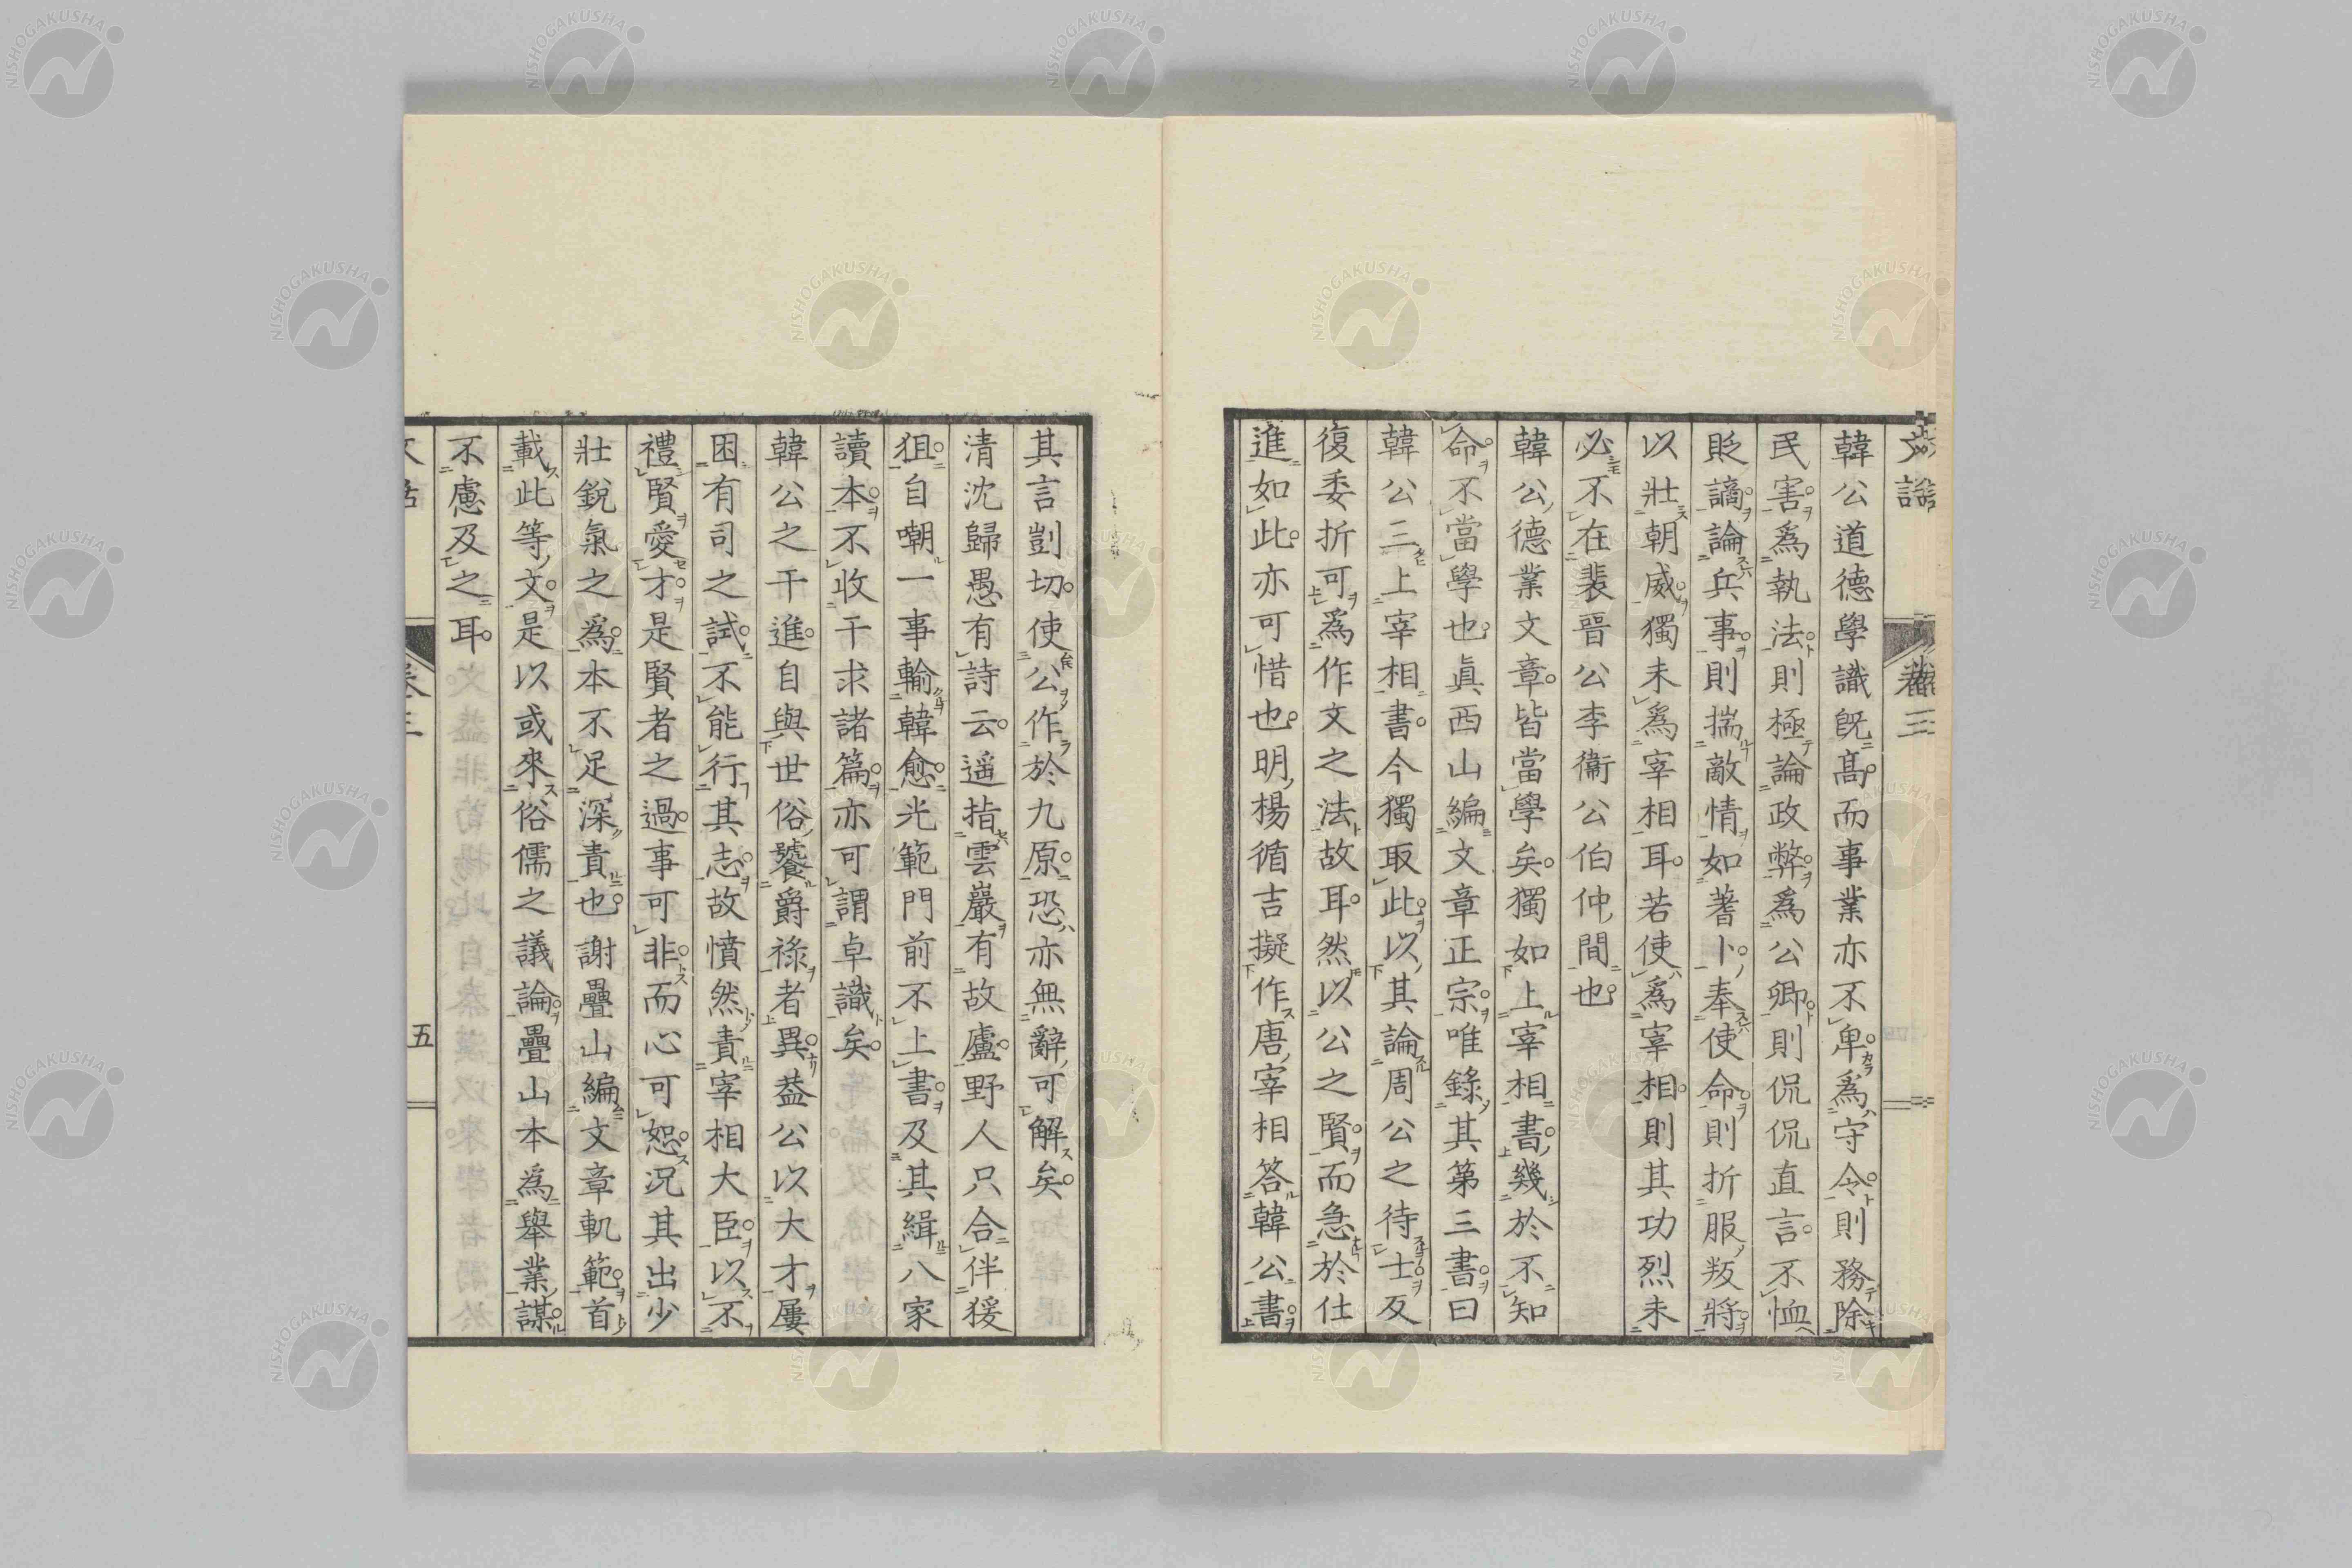 文話
卷三
韓公道德學識既高而事業亦不卑爲守令則務除
民害爲執法則極論政弊爲公卿則侃侃直言不恤
貶謫論兵事則揣敵情如蓍卜奉使命則折服叛將
以壯朝威獨未爲宰相耳若使爲宰相則其功烈未
必不在裴晉公李衞公伯仲間也
韓公德業文章皆當學矣獨如上宰相書幾於不知
命不當學也眞西山編文章正宗唯錄其第三書曰
韓公三上宰相書今獨取此以其論周公之待士反
復委折可爲作文之法故耳然以公之賢而急於仕
進如此亦可惜也明楊循吉擬作唐宰相答韓公書
其言剴切使公作於九原恐亦無辭可解矣
清沈歸愚有詩云遥指雲巖有故廬野人只合伴猨
狙自嘲一事輸韓愈光範門前不上書及其緝八家
讀本不收干求諸篇亦可謂卓識矣
韓公之干進自與世俗饕爵祿者異葢公以大才屢
困有司之試不能行其志故憤然責宰相大臣以不
禮賢愛才是賢者之過事可非而心可恕況其出少
壯銳氣之爲本不足深責也謝疊山編文章軌範首
載此等文是以或來俗儒之議論疊山本爲舉業謀
不慮及之耳
文話
卷三
五
NISHOGAKUSHA